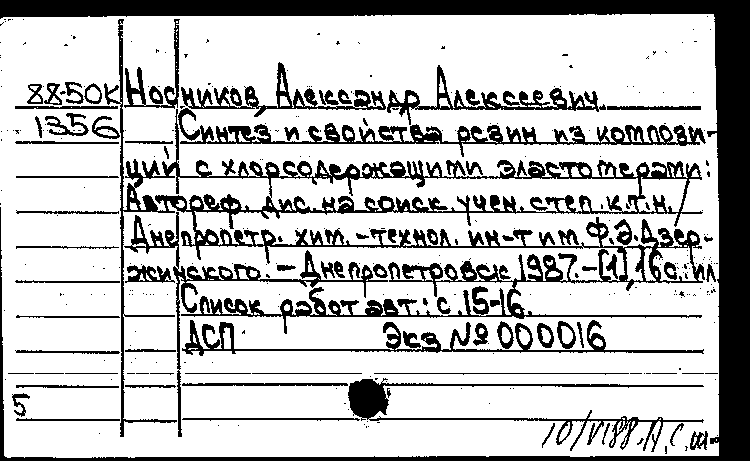 88-50К Носников, Александр Алексеевич.
1356 Синтез и свойства резин из компози-
ций с хлорсодержащими эластомерами:
Автореф. дис. на соиск. учен. степ. к.т.н. /
Днепропетр. хим.-технол. ин-т им. Ф.Э.Дзер-
жинского. – Днепропетровск, 1987.–[1], 16с.: ил.
Список работ авт.: с. 15-16.
ДСП Экз № 000016
5
10/VI88.А.С.